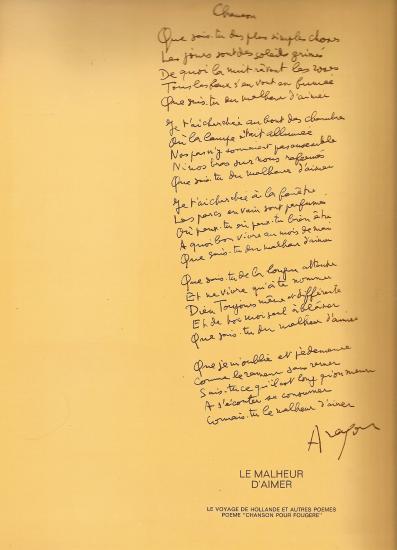 Chanson
Que sais-tu des plus simples choses
Les jours sont des soleils grimés
De quoi la nuit rêvent les roses
Tous les feux s'en vont en fumée
Que sais-tu du malheur d'aimer
Je t'ai cherchée au bout des chambres
Où la lampe était allumée
Nos pas n'y sonnaient pas ensemble
Ni nos bras sur nous refermés
Que sais-tu du malheur d'aimer
Je t'ai cherchée à la fenêtre
Les parcs en vain sont parfumés
Où peux-tu où peux-tu bien être
A quoi bon vivre au mois de mai
Que sais-tu du malheur d'aimer
Que sais-tu de la longue attente
Et ne vivre qu'à te nommer
Dieu Toujours même et différente
Et de toi moi seul à blâmer
Que sais-tu du malheur d'aimer
Que je m'oublie et je demeure
Comme le rameur sans ramer
Sais-tu ce qu'il est long qu'on meure
A s'écouter se consumer
Connais-tu le malheur d'aimer
Aragon
LE MALHEUR
D'AIMER
LE VOYAGE DE HOLLANDE ET AUTRES POEMES
POEME "CHANSON POUR FOUGERE"